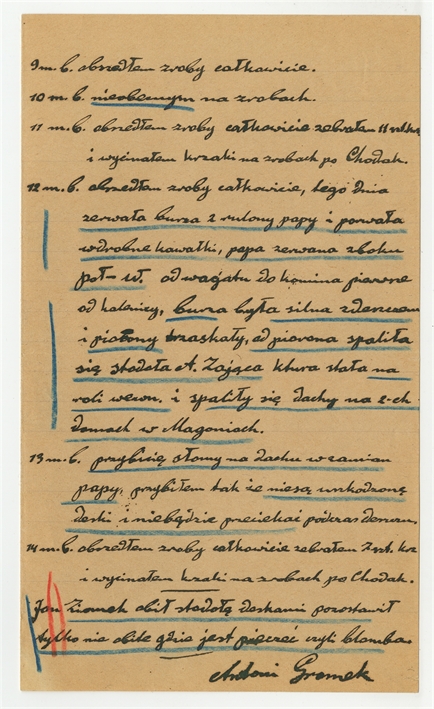 9 m. b. obszedłem zroby całkowicie.
10 m. b. nieobecnym na zrobach.
11 m. b. obszedłem zroby całkowicie zebrałem 11 szt.
i wycinałem krzaki na zrobach po Chodak.
12 m. b. obszedłem zroby całkowicie, tego dnia
zerwała burza 2 rulony papy i porwała
w drobne kawałki, papa zerwana z boku
poł- w. od wagatu do komina pierwsze
od kalenicy, burza była silna z deszczem
i pioruny trzaskały, od pioruna spaliła
się stodoła A. Zająca ktura stała na
roli wewn. i spaliły się dachy na 2-ch
domach w Magoniach.
13 m. b. przybicię słomy na dachu w zamian
papy, przybiłem tak że niesą uszkodzone
deski i niebędzie przeciekać podczas deszczu.
14 m. b. obszedłem zroby całkowicie zebrałem 7 szt. krz
i wycinałem krzaki na zrobach po Chodak.
Jan Ziomek obił stodołę deskami pozostawił
tylko nie obite gdzie jest pieczeć czyli blomba.
Antoni Gromek